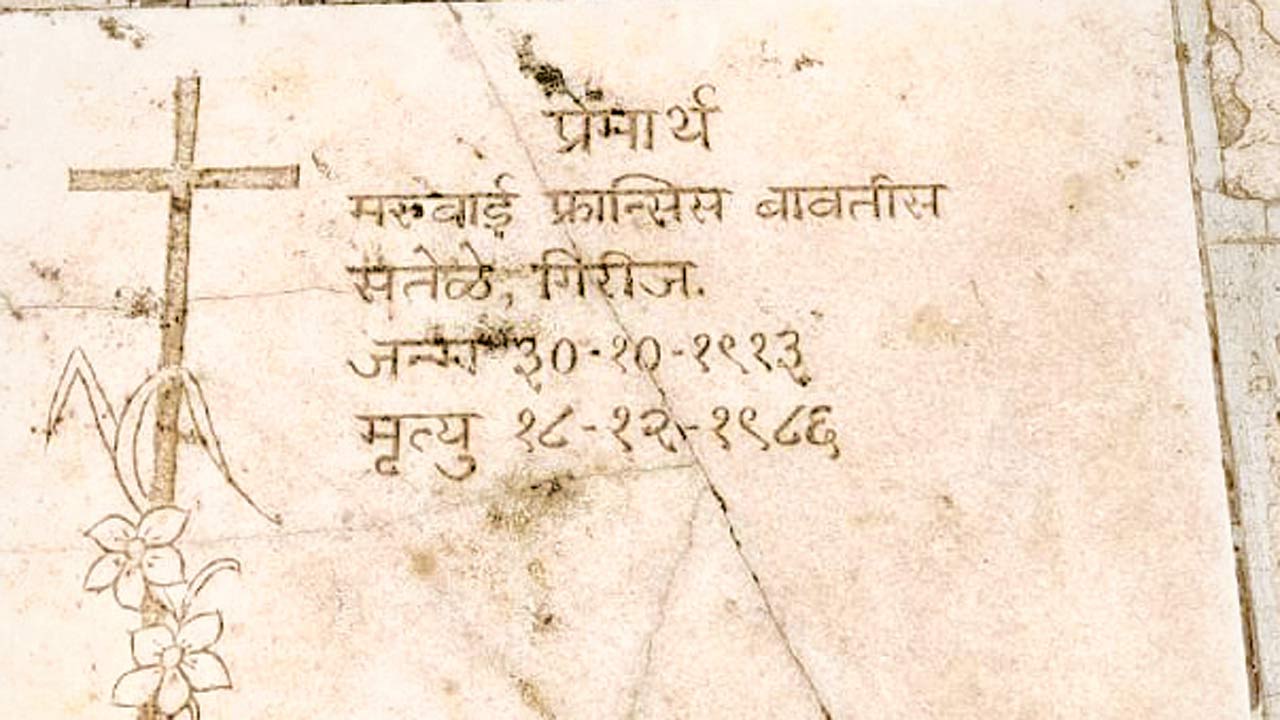 प्रेमार्थ
मरुबाई फ्रान्सिस बावतीस
सतेळे, गिरीज.
जन्म ३०-१०-१९१३
मृत्यु १८-१२-१९८६